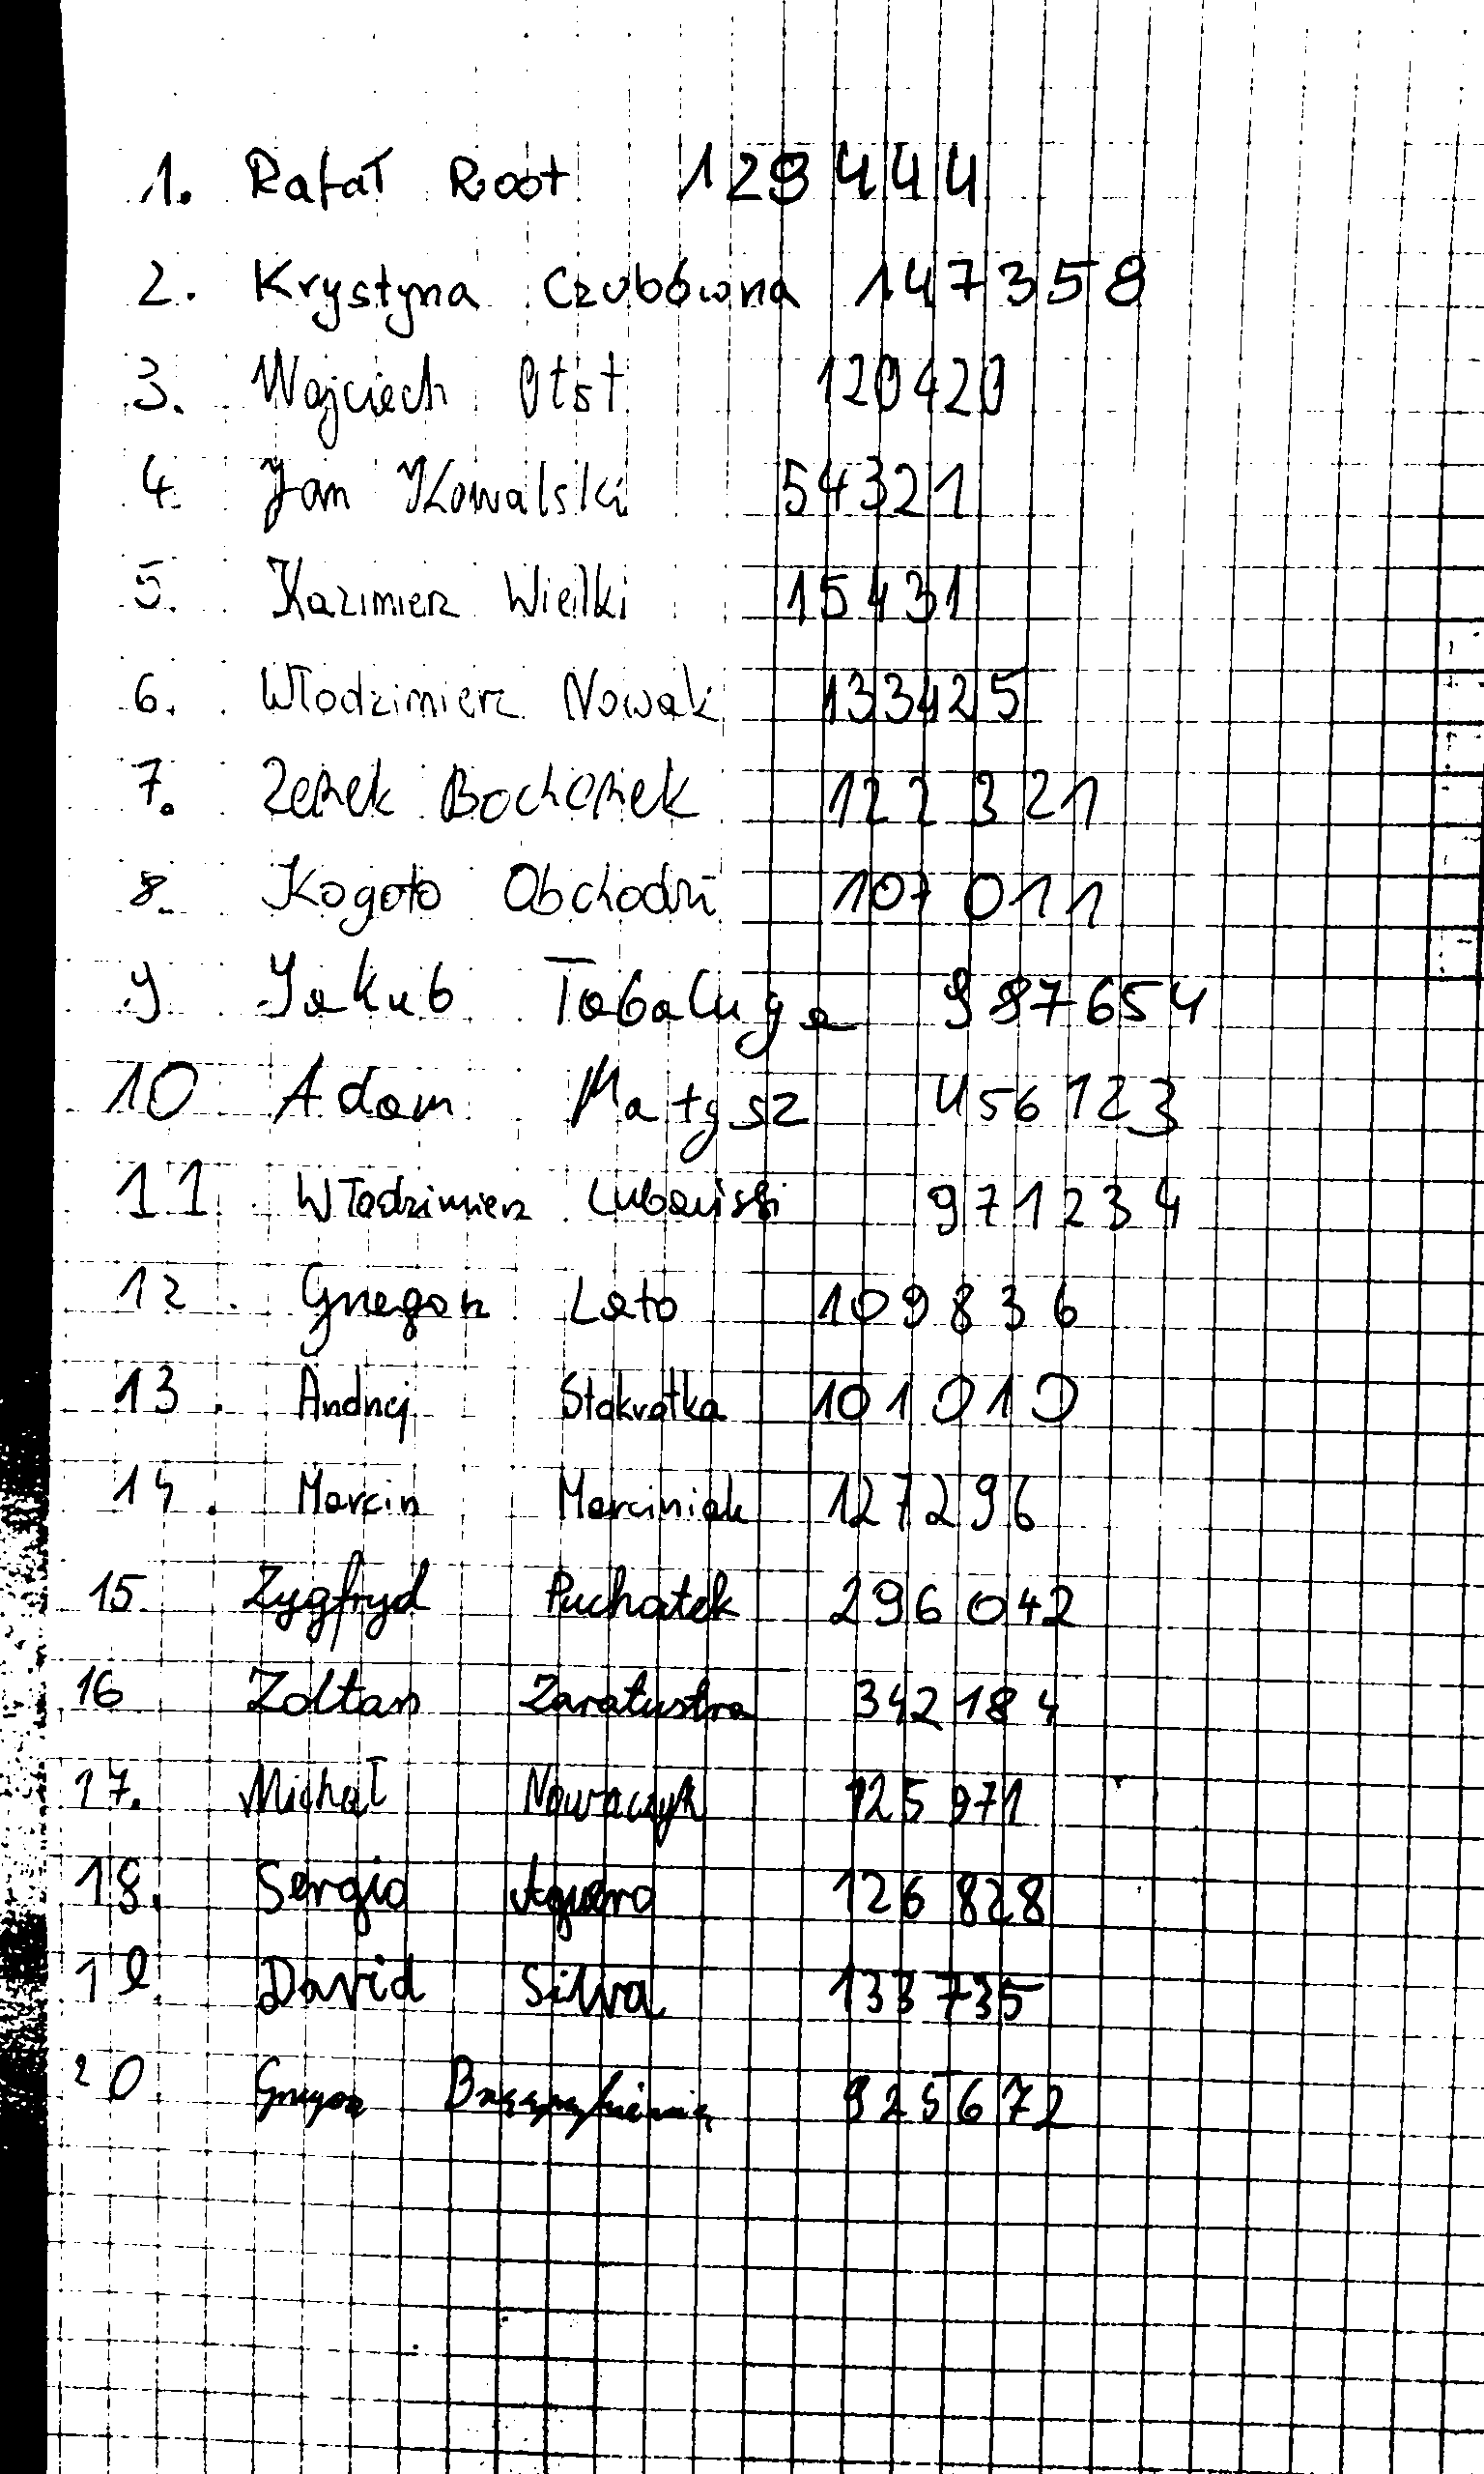 1. Rafał Root 129444
2. Krystyna Czubówna 147358
3. Wojciech Otst 120420
4. Jan Kowalski 54321
5. Kazimierz Wielki 15431
6. Włodzimierz Nowak 133425
7. Zenek Bochenek 122321
8. Kogoto Obchodzi 107011
9 Jakub Tabaluga 987654
10 Adam Małysz 456123
11 Włodzimierz Lubański 971234
12. Grzegorz Lato 109836
13. Andrzej Stokrotka 101010
14. Marcin Marciniak 127296
15 Zygfryd Puchatek 296042
16 Zoltan Zaratustra 342184
17. Michał Nowaczyk 125971
18. Sergio Aguero 126828
19 David Silva 133735
20 Grzegorz 925672